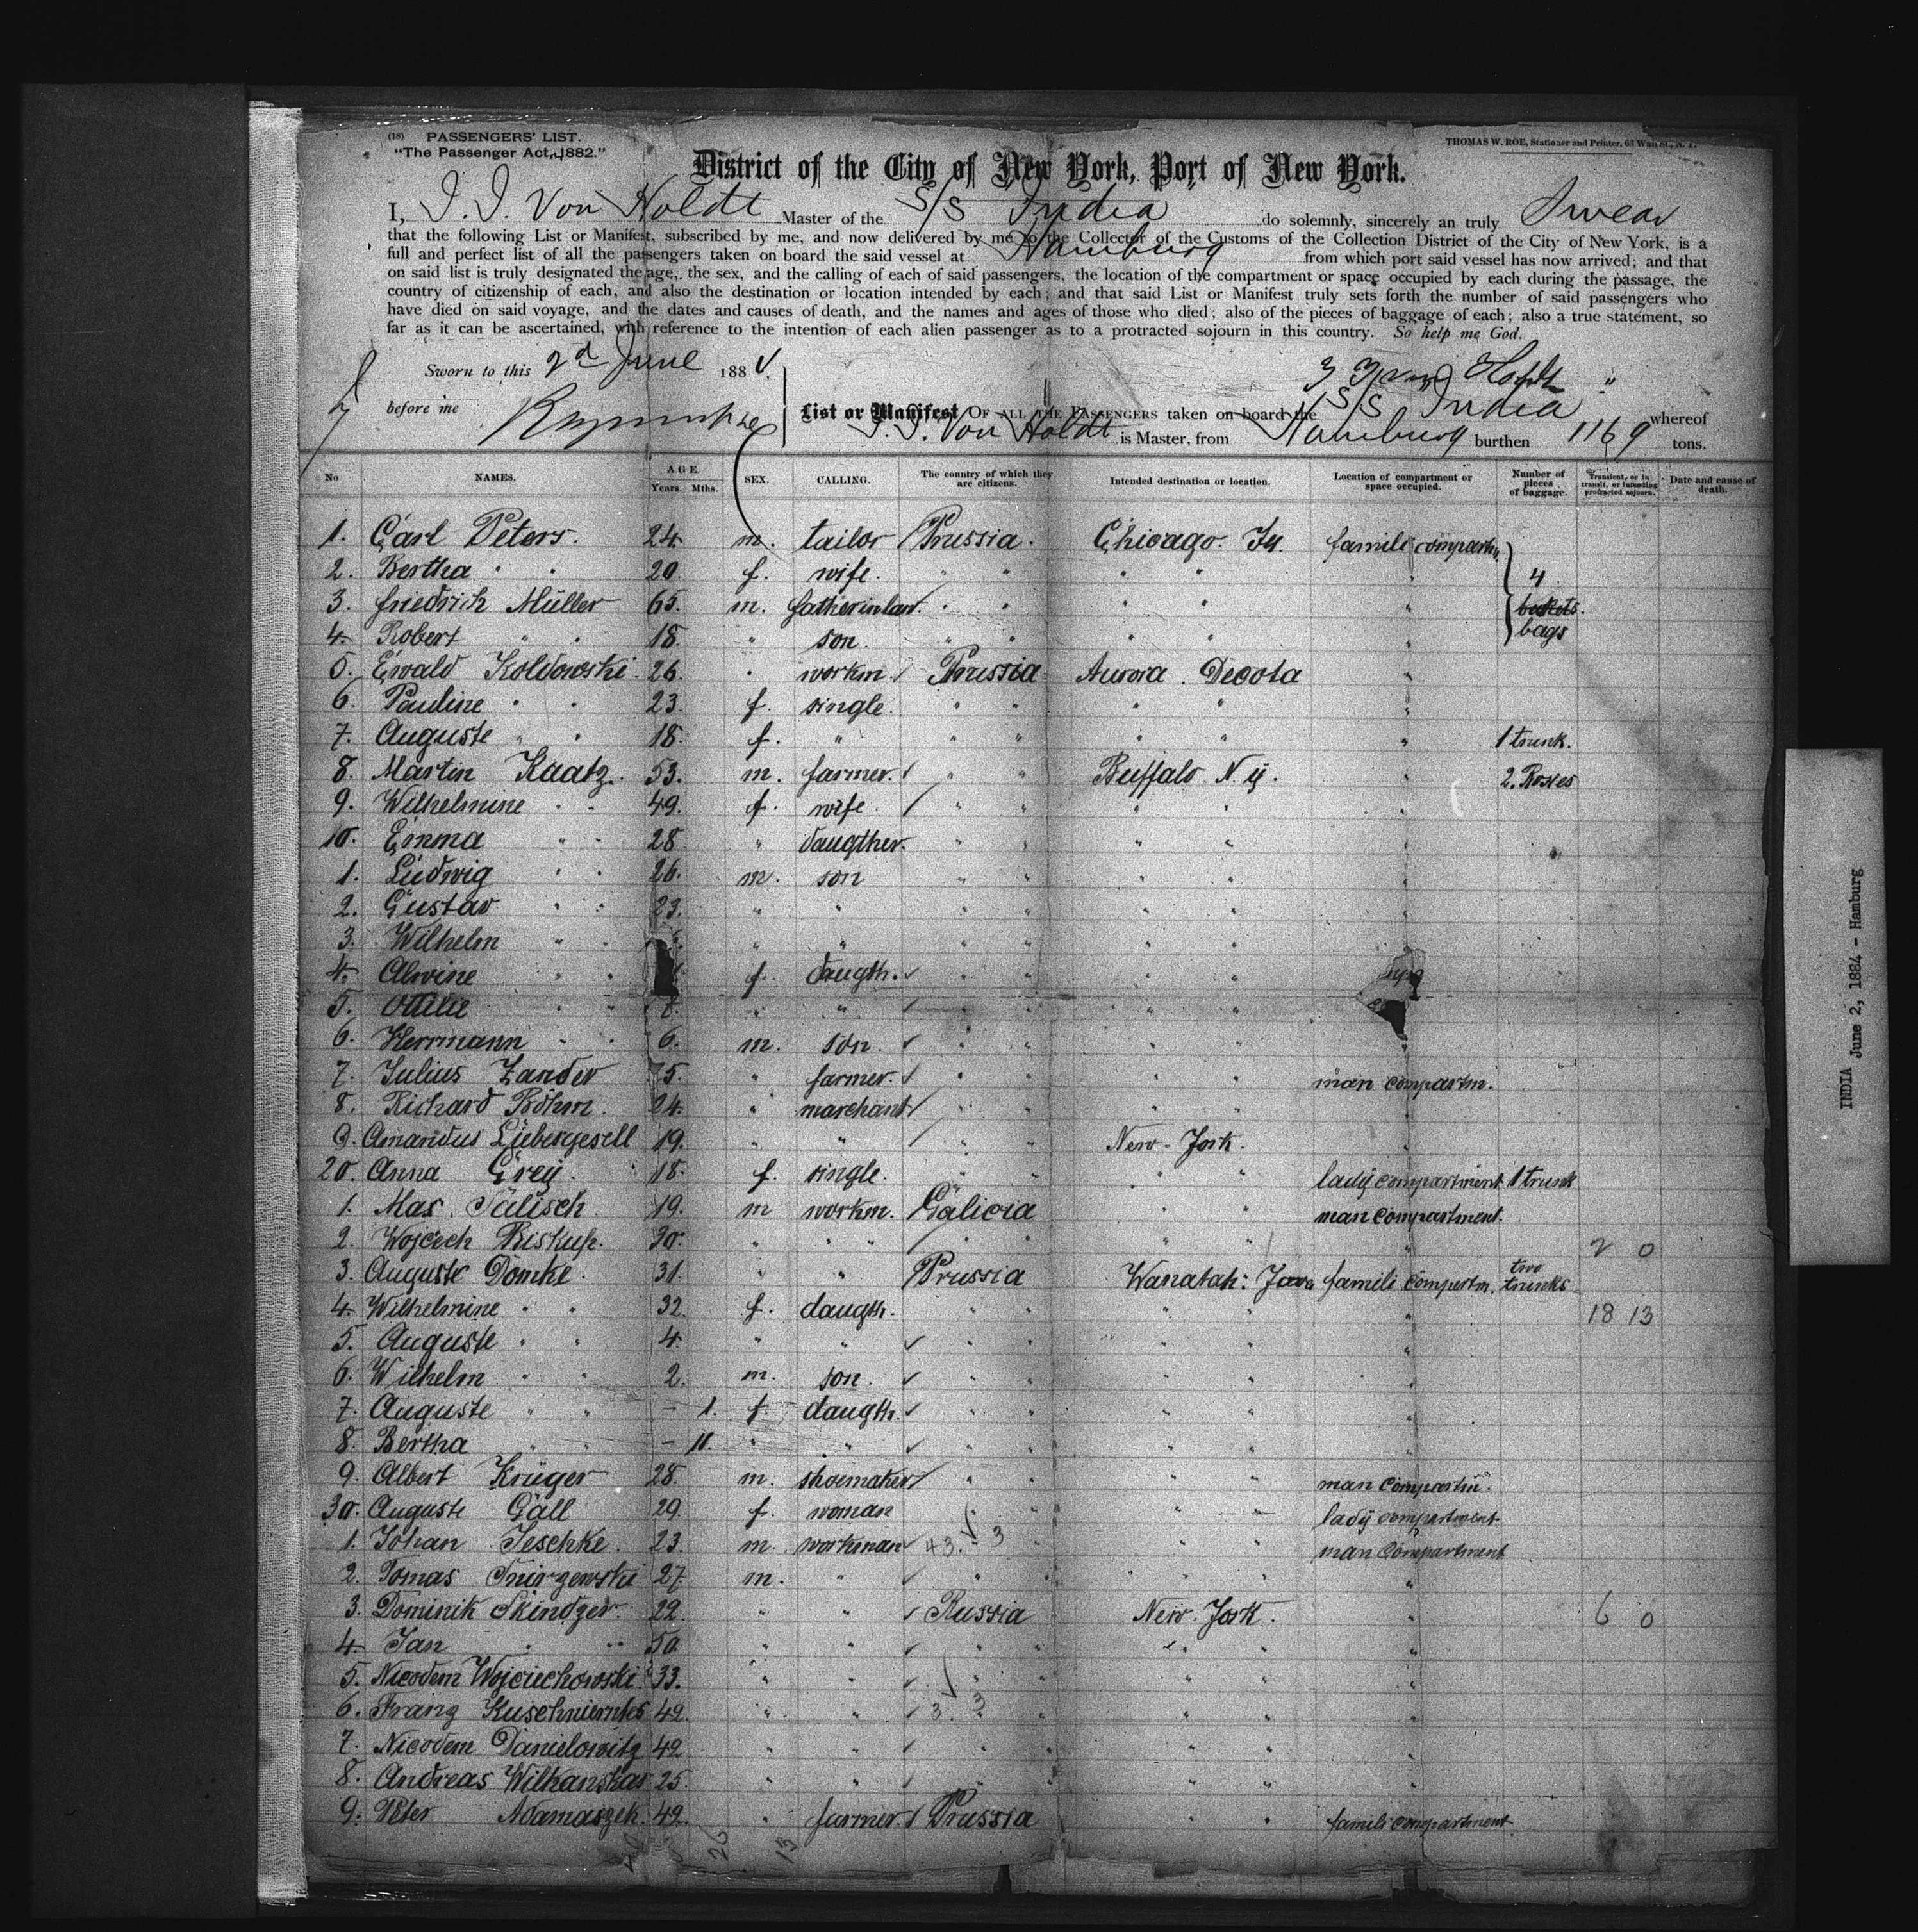 (18) PASSENGERS' LIST.
"The Passenger Act, 1882."
THOMAS W. ROE, Stationer and Printer, 63 Wall St., N. Y.
District of the City of New York, Port of New York.
I, J. J. Von Holdt Master of the S/S India do solemnly, sincerely an truly Swear
that the following List or Manifest, subscribed by me, and now delivered by me to the Collector of the Customs of the Collection District of the City of New York, is a
full and perfect list of all the passengers taken on board the said vessel at Hamburg from which port said vessel has now arrived; and that
on said list is truly designated the age, the sex, and the calling of each of said passengers, the location of the compartment or space occupied by each during the passage, the
country of citizenship of each, and also the destination or location intended by each; and that said List or Manifest truly sets forth the number of said passengers who
have died on said voyage, and the dates and causes of death, and the names and ages of those who died; also of the pieces of baggage of each; also a true statement, so
far as it can be ascertained, with reference to the intention of each alien passenger as to a protracted sojourn in this country. So help me God.
Sworn to this 2d June 1884.
before me
List or Manifest OF ALL THE PASSENGERS taken on board the S/S India whereof
J. J. Von Holdt is Master, from Hamburg burthen 1169 tons.
No NAMES. AGE. Years. Mths. SEX. CALLING. The country of which they are citizens. Intended destination or location. Location of compartment or space occupied. Number of pieces of baggage. Transient, or in transit, or intending protracted sojourn. Date and cause of death.
1. Carl Peters. 24. m. tailor Prussia. Chicago. famili compartm.
2. Bertha " " 20. f. wife. " " " " " 4
3. friedrich Müller 65. m. fatherinlaw. " " " " "
4. Robert " " 18. " son. " " " " " bags
5. Ewald Koldowski 26. " workm. Prussia Aurora. Decota "
6. Pauline " " 23. f. single. " " " " "
7. Auguste " " 18. f. " " " " " " 1 trunk.
8. Martin Kaatz. 53. m. farmer. " " Buffalo N. ÿ. " 2.
9. Wilhelmine " " 49. f. wife. " " " " "
10. Emma " " 28 " daugther. " " " " "
1. Ludwig " " 26. m. son " " " " "
2. Gustav " " 23. " " " " " " "
3. Wilhelm " " " " " " " "
4. Alwine " " f. daugth. " " " "
5. Ottilie " " 8. " " " " " "
6. Herrmann " " 6. m. son. " " " " "
7. Julius Zander " farmer. " " " " man compartm.
8. Richard Böhm. 24. " marchant " " " " "
9. Amandus Liebergesell 19. " " " " New-Jork. "
20. Anna Greÿ. 18. f. single. " " " " ladÿ compartment 1 trunk
1. Max Jälisch. 19. m workm. Galicia " " man compartment.
2. Wojciech Biskup. 30. " " " " " " " " 2 0
3. Auguste Domke. 31. " " Prussia Wanatah: famili compartm. two trunks
4. Wilhelmine " " 32. f. daugth. " " " " " 18 13
5. Auguste " " 4. " " " " " " "
6. Wilhelm " " 2. m. son. " " " " "
7. Auguste " " - 1. f. daugth. " " " " "
8. Bertha " " - 11. " " " " " " "
9. Albert Krüger 28. m. shoemaker " " " " man compartm.
30. Auguste Gall 29. f. woman " " " " ladÿ compartment
1. Johan Jeschke. 23. m. workman 43. 3 " " " man compartment
2. Tomas 27. m. " " " " " "
3. Dominik Skindzer. 22. " " Russia New-Jork. " 6 0
4. Jan " " 50. " " " " " " "
5. Nicodem Wojciechowski 33. " " " " " " "
6. Franz 42. " " 3. 3 " " " "
7. Nicodem Danielowitz 42 " " " " " " "
8. Andreas Wilkanskas 25. " " " " " " "
9. Peter Adamaszek. 42. " farmer. Prussia " " famili compartment
26 13
INDIA June 2, 1884 - Hamburg